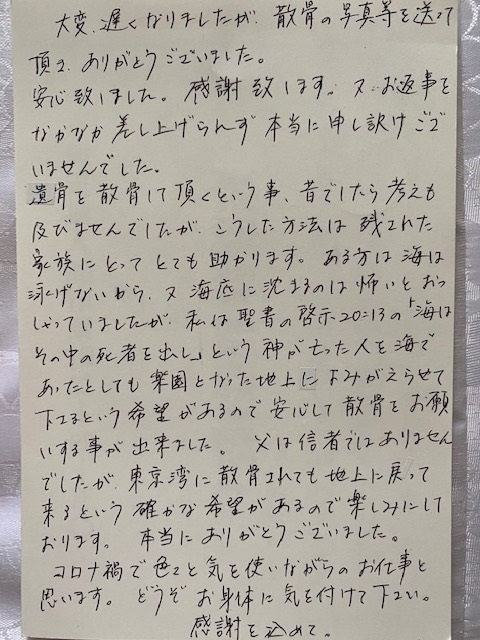 大変、遅くなりましたが、散骨の写真等を送って
頂き、ありがとうございました。
安心致しました。感謝致します。又、お返事を
なかなか差し上げられず本当に申し訳けござ
いませんでした。
遺骨を散骨して頂くという事、昔でしたら考えも
及びませんでしたが、こうした方法は残された
家族にとってとても助かります。ある方は海は
泳げないから、又海底に沈まるのは怖いとおっ
しゃっていましたが、私は聖書の啓示20:13の「海は
その中の死者を出し」という神が亡った人を海で
あったとしても楽園となった地上によみがえらせて
下さるという希望があるので安心して散骨をお願
いする事が出来ました。父は信者ではありません
でしたが、東京湾に散骨されても地上に戻って
来るという確かな希望があるので楽しみにして
おります。本当にありがとうございました。
コロナ禍で色々と気を使いながらのお仕事と
思います。どうぞお身体に気を付けて下さい。
感謝を込めて。